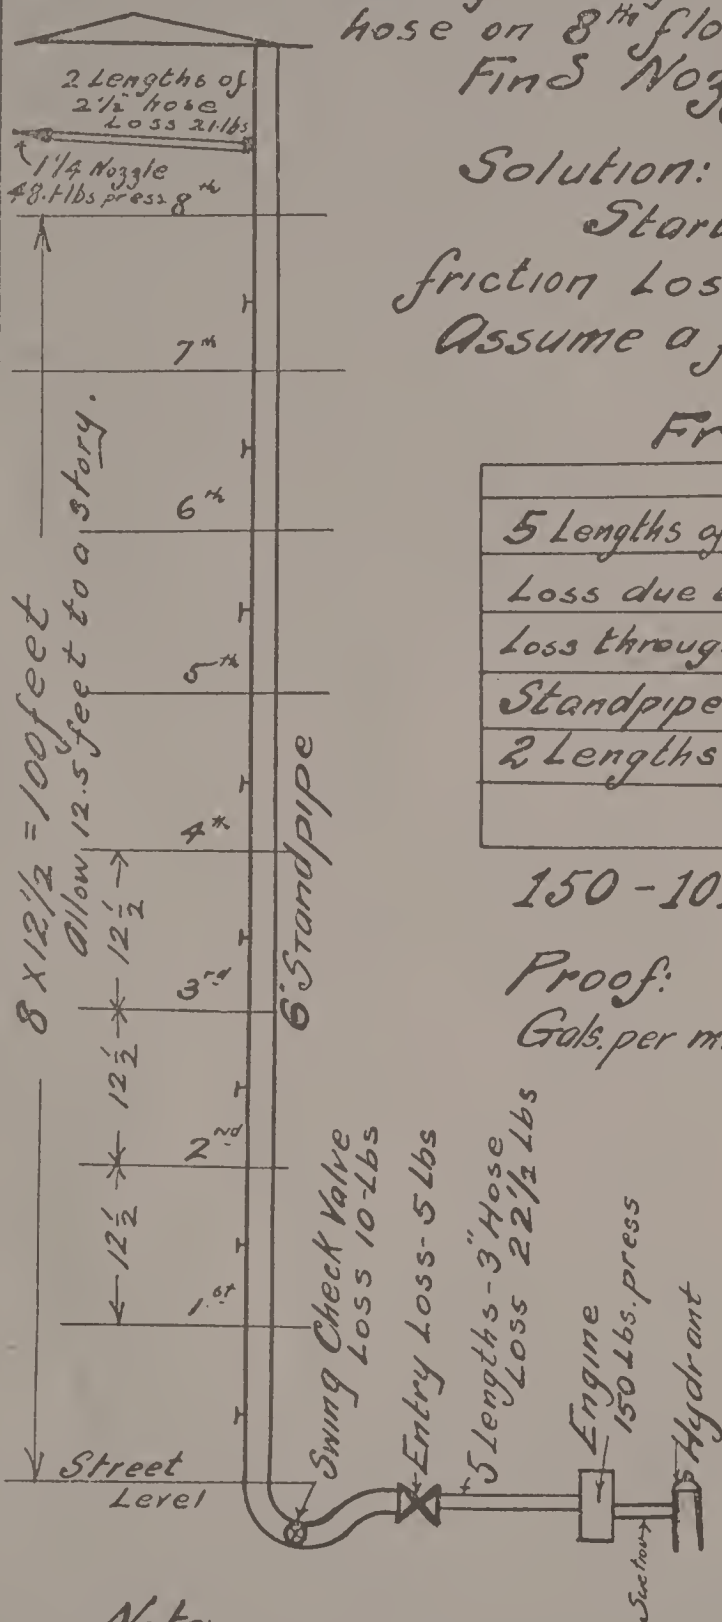 hose on 8th flo
Find Nozz
Solution:
Start
friction Loss
Assume a f
Fr
5 Lengths of
Loss due
Loss through
Standpipe
2 Lengths
150-10
Proof:
Gals. per m
2 Lengths of
2 1/2 hose
Loss 21.lbs
1 1/4 Nozzle
48.+lbs press 8th
7th
6th
5th
4th
3rd
2nd
1st
8 x 12 1/2 = 100 feet
Allow 12.5 feet to a story.
12 1/2
12 1/2
12 1/2
6" Standpipe
Swing Check Valve
Loss 10-Lbs
Entry Loss-5 Lbs
5 Lengths-3" Hose
Loss 22 1/2 Lbs
Engine
150 Lbs. press
Hydrant
Suction
Street
Level
Note